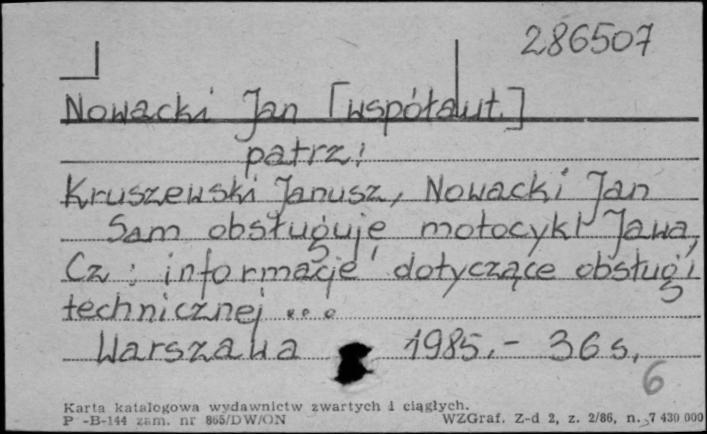 286507
Nowacki Jan [współaut.]
patrz:
Kruszewski Janusz, Nowacki Jan
Sam obsługuję motocykl Jawa,
Cz : informacje dotyczące obsługi
technicznej ...
Warszawa 1985.- 36 s.
6
Karta katalogowa wydawnictw zwartych i ciągłych.
P -B-144 zam. nr 865/DW/ON WZGraf. Z-d 2, z. 2/86, n. 7 430 000